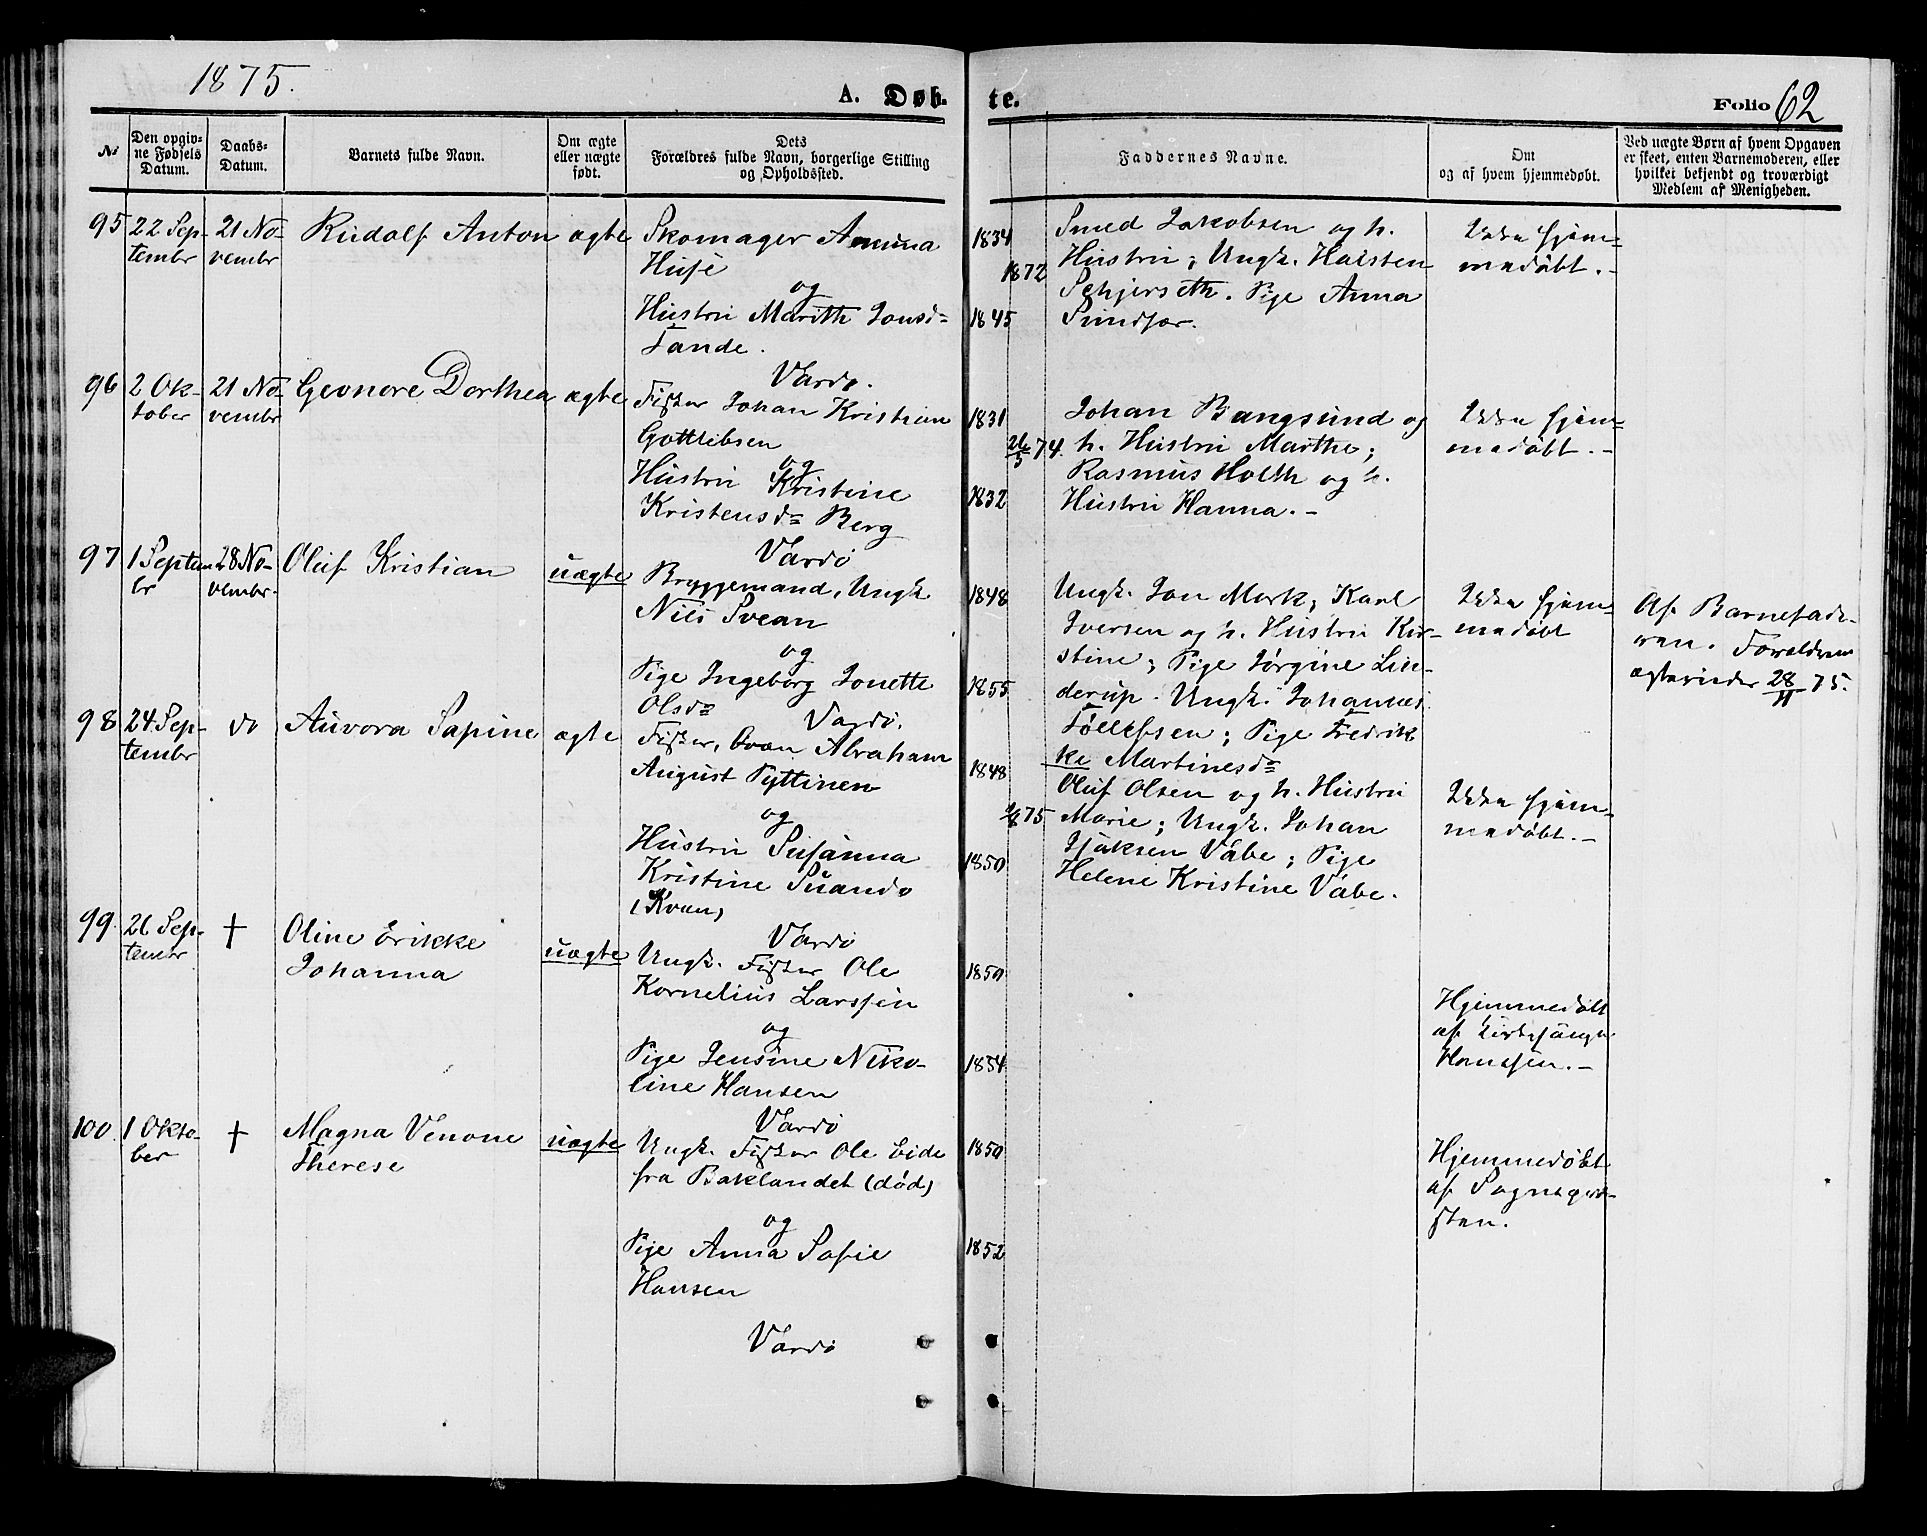 1875.
A. Døb-
te.
Folio 62
No
Den opgiv-
ne Fødsels
Datum.
Daabs-
Datum.
Barnets fulde Navn.
Om ægte
eller uægte
født.
Dets
Forældres fulde Navn, borgerlige Stilling
og Opholdssted.
Faddernes Navne.
Om
og af hvem hjemmedøbt.
Ved uægte Børn af hvem Opgaven
er skeet, enten Barnemoderen, eller
hvilket bekjendt og troværdigt
Medlem af Menigheden.
95
22 Sep-
tembr
21 No-
vembr
Rudolf Anton
ægte
Skomager
Huse
og
Hustru Marith Jonsd=
Tande.
Vardø.
1834
1872
1845
Smed Jakobsen og h.
Hustru; Ungk. Halsten
Pige Anna
Sundfær.
Ikke hjem=
medøbt.-
96
2 Ok-
tober
21 No-
vembr
Geonore Dorthea
ægte
Fisker Johan Kristian
Gottlibsen
og
Hustru Kristine
Kristensd= Berg
Vardø
1831
26/5 74.
1832
Johan Bangsund og
h. Hustru Marthe;
Rasmus Holth og h.
Hustru Hanna.-
Ikke hjem=
medøbt.-
97
1 Septem
br
28 No-
vembr.
Oluf Kristian
uægte
Bryggemand, Ungk.
Nils Svean
og
Pige Ingeborg Jonette
Olsd=
Vardø.
1848
1855
Ungk. Jon Mork; Karl
Iversen og h. Hustru Kir-
stine; Pige Jørgine Lin-
derup. Ungk. Johannes
Tøllefsen; Pige Fredrik
ke Martinesd=
Ikke hjem=
medøbt
Af Barnefade-
ren. Forældrene
ægtevieder 28/11 75.
98
24 Sep-
tembr
do
Auvora Sapine
ægte
Fisker, Kvæn Abraham
August Pyttinen
og
Hustru Susanna
Kristine Suando
(Kvæn)
Vardø
1848
2/8 75
1850
Oluf Olsen og h. Hustru
Marie; Ungk. Johan
Isaksen Vábe; Pige
Helene Kristine Vábe.
Ikke hjem=
medøbt.-
99.
26 Sep-
tembr
†
Oline Erikke
Johanna
uægte
Ungk. Fisker Ole
Kornelius Larssen
og
Pige Jensine Niko-
line Hansen
Vardø
1850
1854
Hjemmedøbt
af Kirkesanger
Hanssen.-
100.
1 Okto-
ber
†
Magna Venone
Therese
uægte
Ungk. Fisker Ole Eide
fra Baklandet (død)
og
Pige Anna Sofie
Hansen
Vardø
1850
1852
Hjemmedøbt
af Sognepre-
sten.